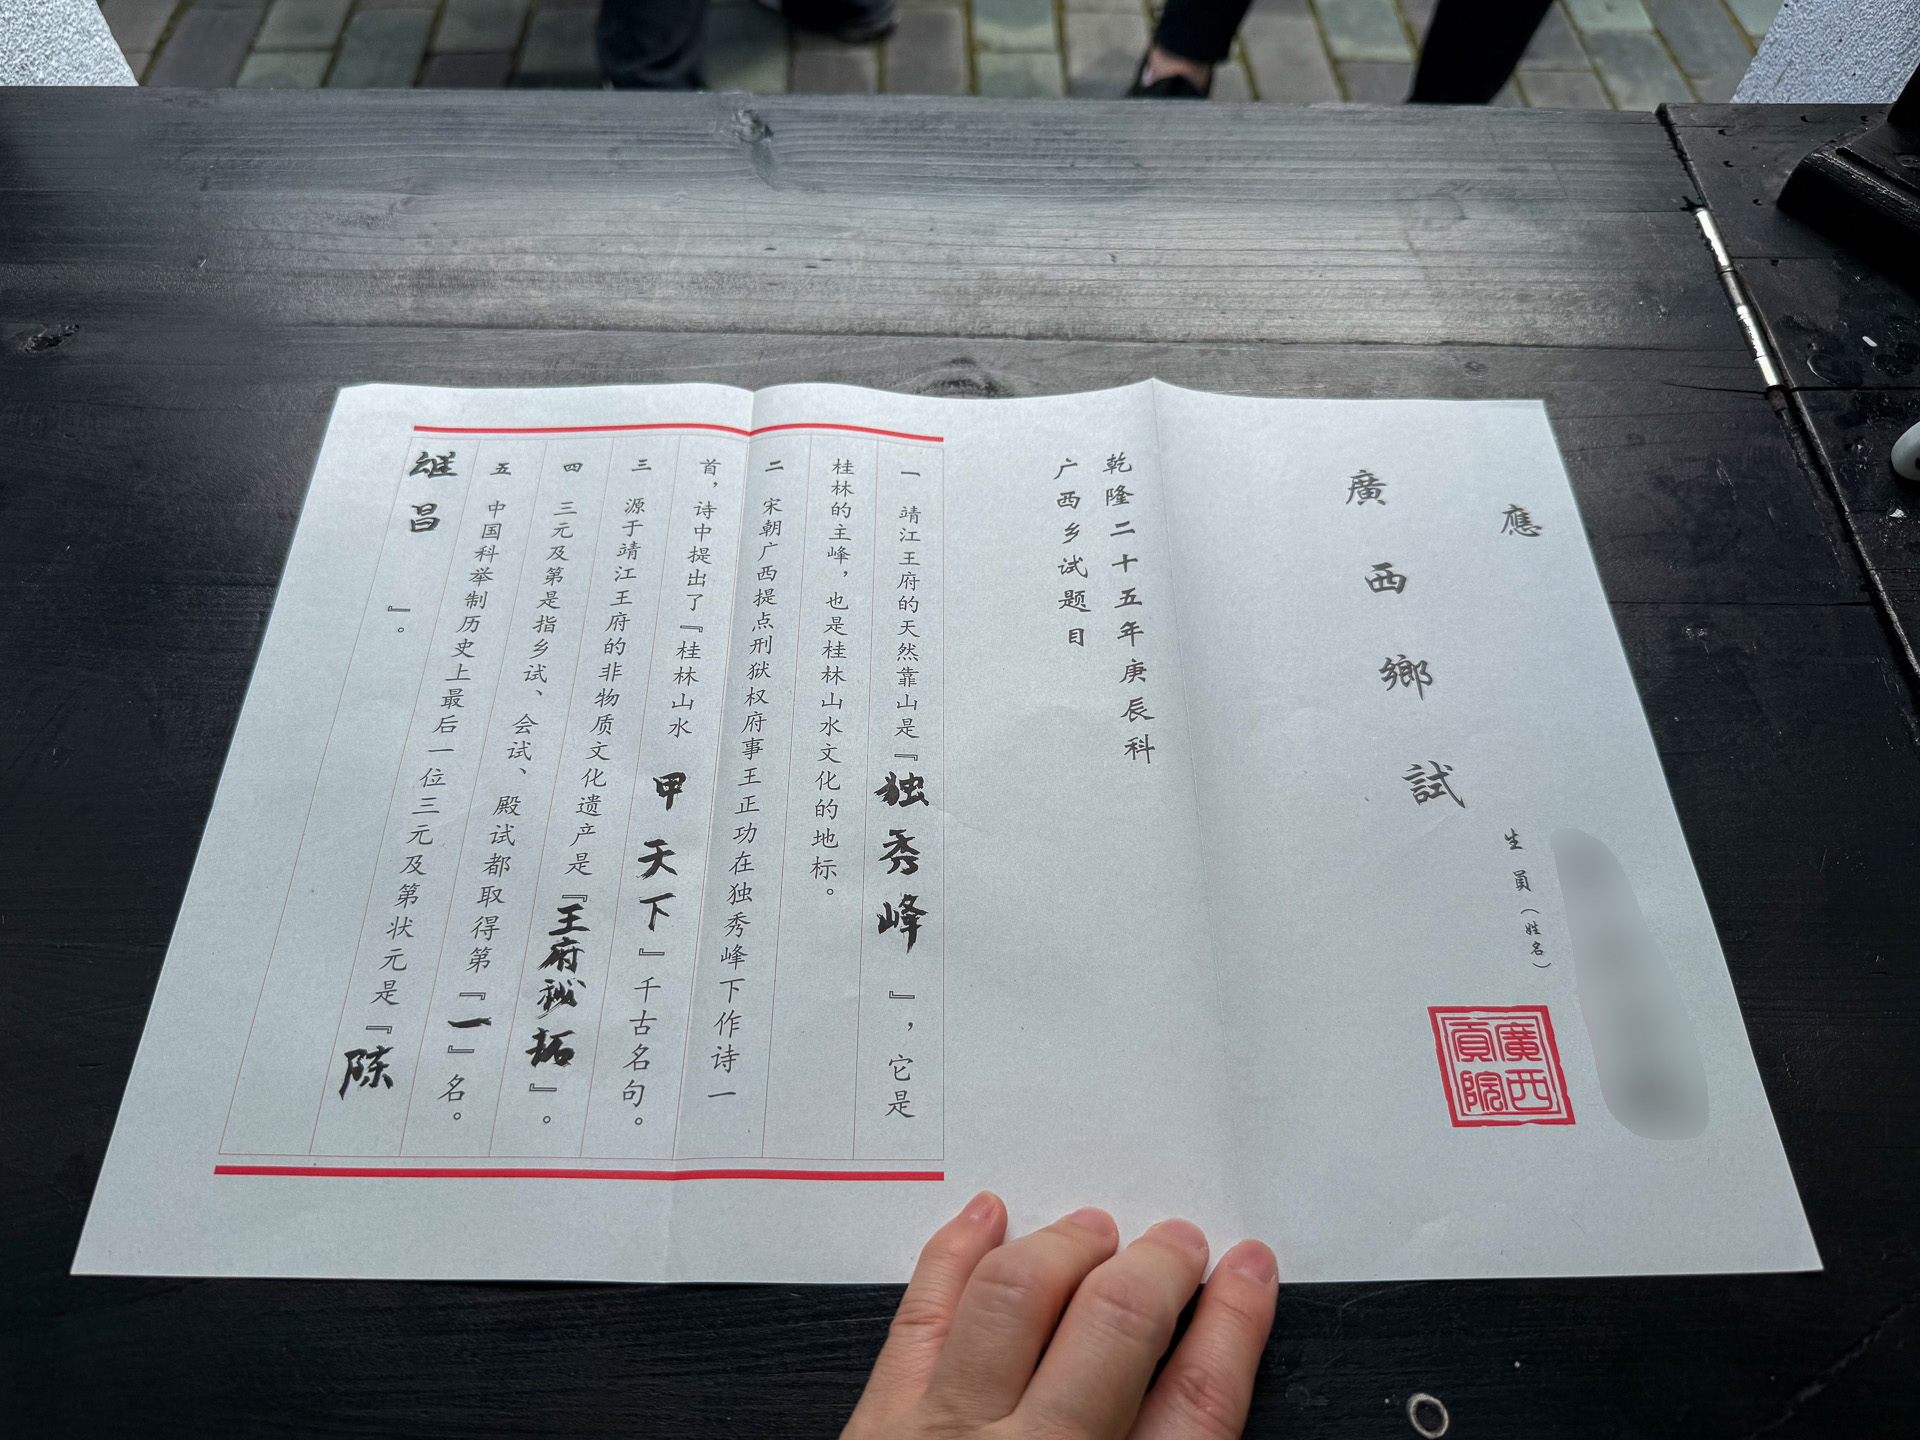 應
廣西鄉試
生員（姓名）
廣西貢院
乾隆二十五年庚辰科
广西乡试题目
一 靖江王府的天然靠山是『独秀峰』，它是
桂林的主峰，也是桂林山水文化的地标。
二 宋朝广西提点刑狱权府事王正功在独秀峰下作诗一
首，诗中提出了『桂林山水甲天下』千古名句。
三 源于靖江王府的非物质文化遗产是『王府秘拓』。
四 三元及第是指乡试、会试、殿试都取得第『一』名。
五 中国科举制历史上最后一位三元及第状元是『陈
继昌』。